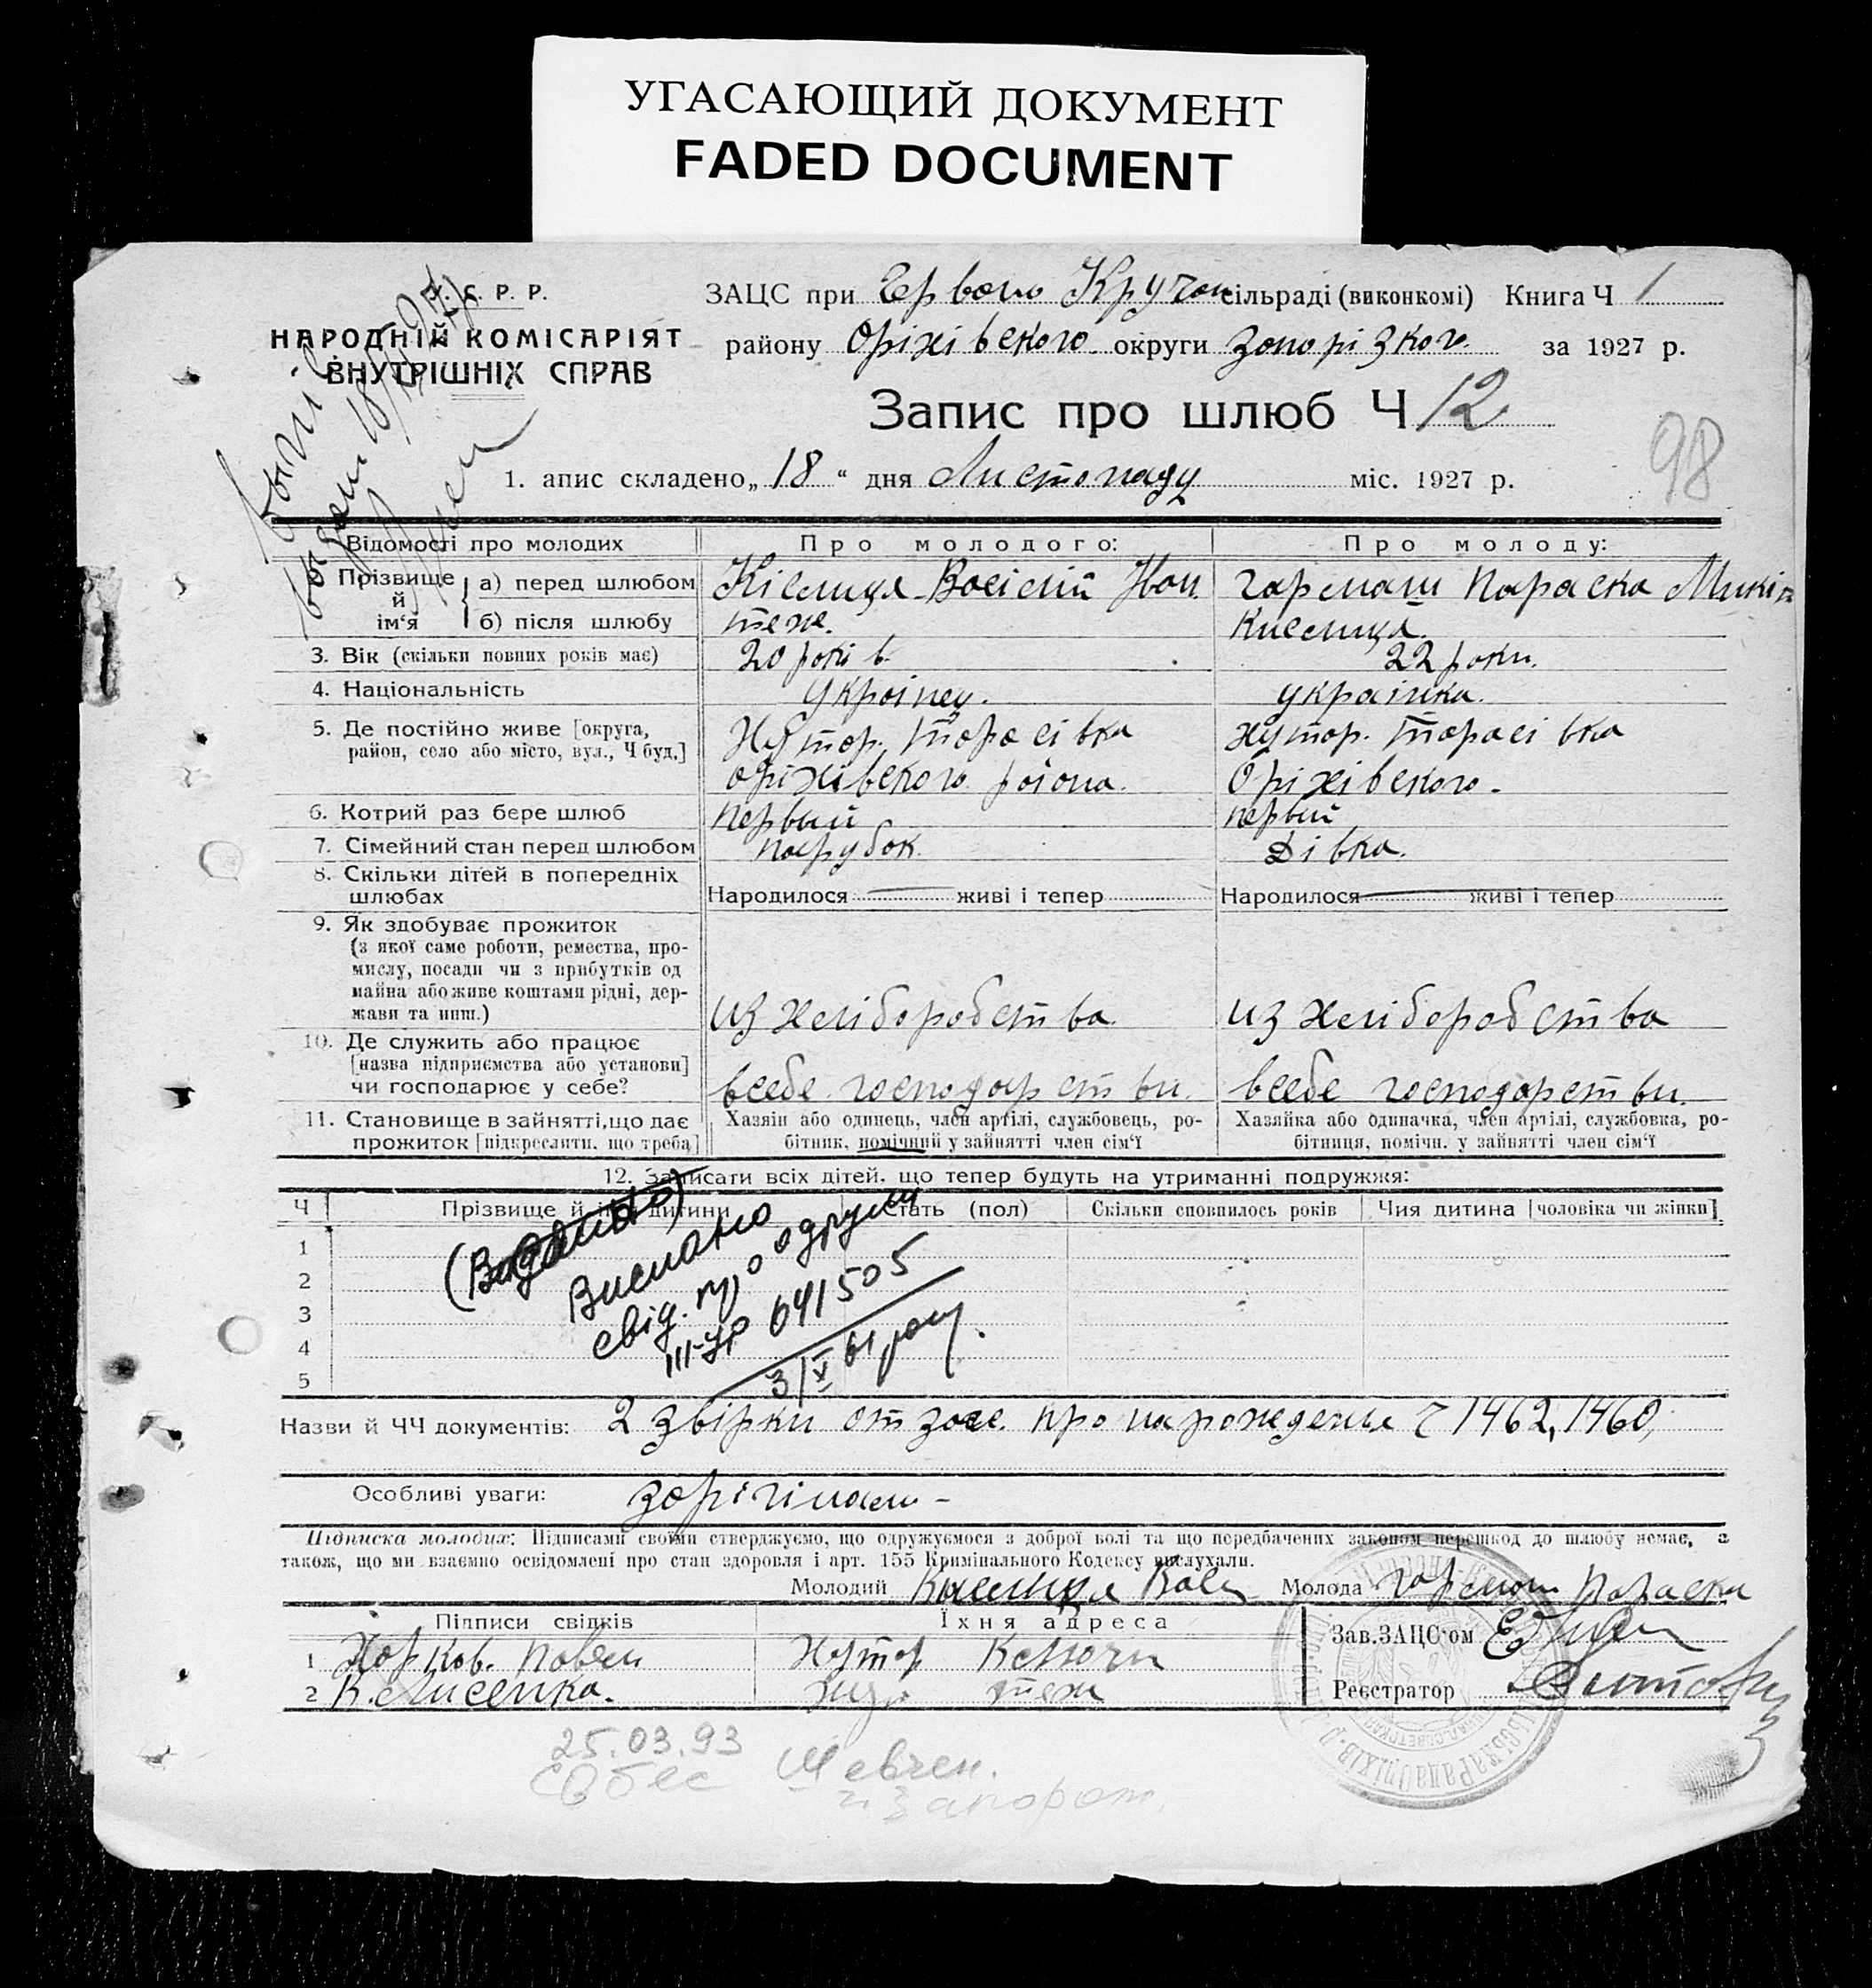 УГАСАЮЩИЙ ДОКУМЕНТ
FADED DOCUMENT
У. С. Р. Р.
НАРОДНІЙ КОМІСАРІЯТ
ВНУТРІШНІХ СПРАВ
ЗАЦС при Червоно Кручан сільраді (виконкомі) Книга Ч 1
району Оріхівского округи Запорізкого. за 1927 р.
Запис про шлюб Ч 12
98
1. апис складено „18“ дня Листопаду міс. 1927 р.
Відомості про молодих
Про молодого:
Про молоду:
Прізвище й ім‘я
а) перед шлюбом Кіслиця Васілій Іван. Гармаш Параска Микіт
б) після шлюбу теж. Кислиця.
3. Вік (скільки повних років має) 20 років 22 роки.
4. Національність Україпец. Українка.
5. Де постійно живе [округа, Хутор. Тарасівка Хутор. Тарасівка
район, село або місто, вул., Ч буд.] Оріхівского района. Оріхівского.
6. Котрий раз бере шлюб первый первый
7. Сімейний стан перед шлюбом парубок. Дівка.
8. Скільки дітей в попередніх
шлюбах Народилося живі і тепер Народилося живі і тепер
9. Як здобуває прожиток
(з якої саме роботи, ремества, про-
мислу, посади чи з прибутків од
майна або живе коштами рідні, дер-
жави та инш.) из хліборобства из хліборобства
10. Де служить або працює
[назва підприємства або установи]
чи господарює у себе? всебе господарстви. всебе господарстви.
11. Становище в зайнятті, що дає
прожиток [підкреслити, що треба]
Хазяїн або одинець, член артілі, службовець, ро-
бітник, помічний у зайнятті член сім‘ї
Хазяйка або одиначка, член артілі, службовка, ро-
бітниця, помічн. у зайнятті член сім‘ї
12. Записати всіх дітей, що тепер будуть на утриманні подружжя:
Ч Прізвище й ім‘я дитини Стать (пол) Скільки сповнилось років Чия дитина [чоловіка чи жінки]
1
2
3
4
5
(Видано)
Вислано
свід. про одруж
III-УР 041505
3/X 61 року.
Назви й ЧЧ документів: 2 звірки от загс. про нарождения Ч 1462, 1460,
Особливі уваги:
Підписка молодих: Підписами своїми стверджуємо, що одружуємося з доброї волі та що передбачених законом перешкод до шлюбу немає, а
також, що ми взаємно освідомлені про стан здоровля і арт. 155 Кримінального Кодексу вислухали.
Молодий Кислиця Вас Молода Гармаш Параска
Підписи свідків
Їхня адреса
Зав. ЗАЦС‘ом
1 Павел Хутор Ключи
2 К. Лисенка. теж
Реєстратор
25.03.93
Собес Шевчен.
Запорож.